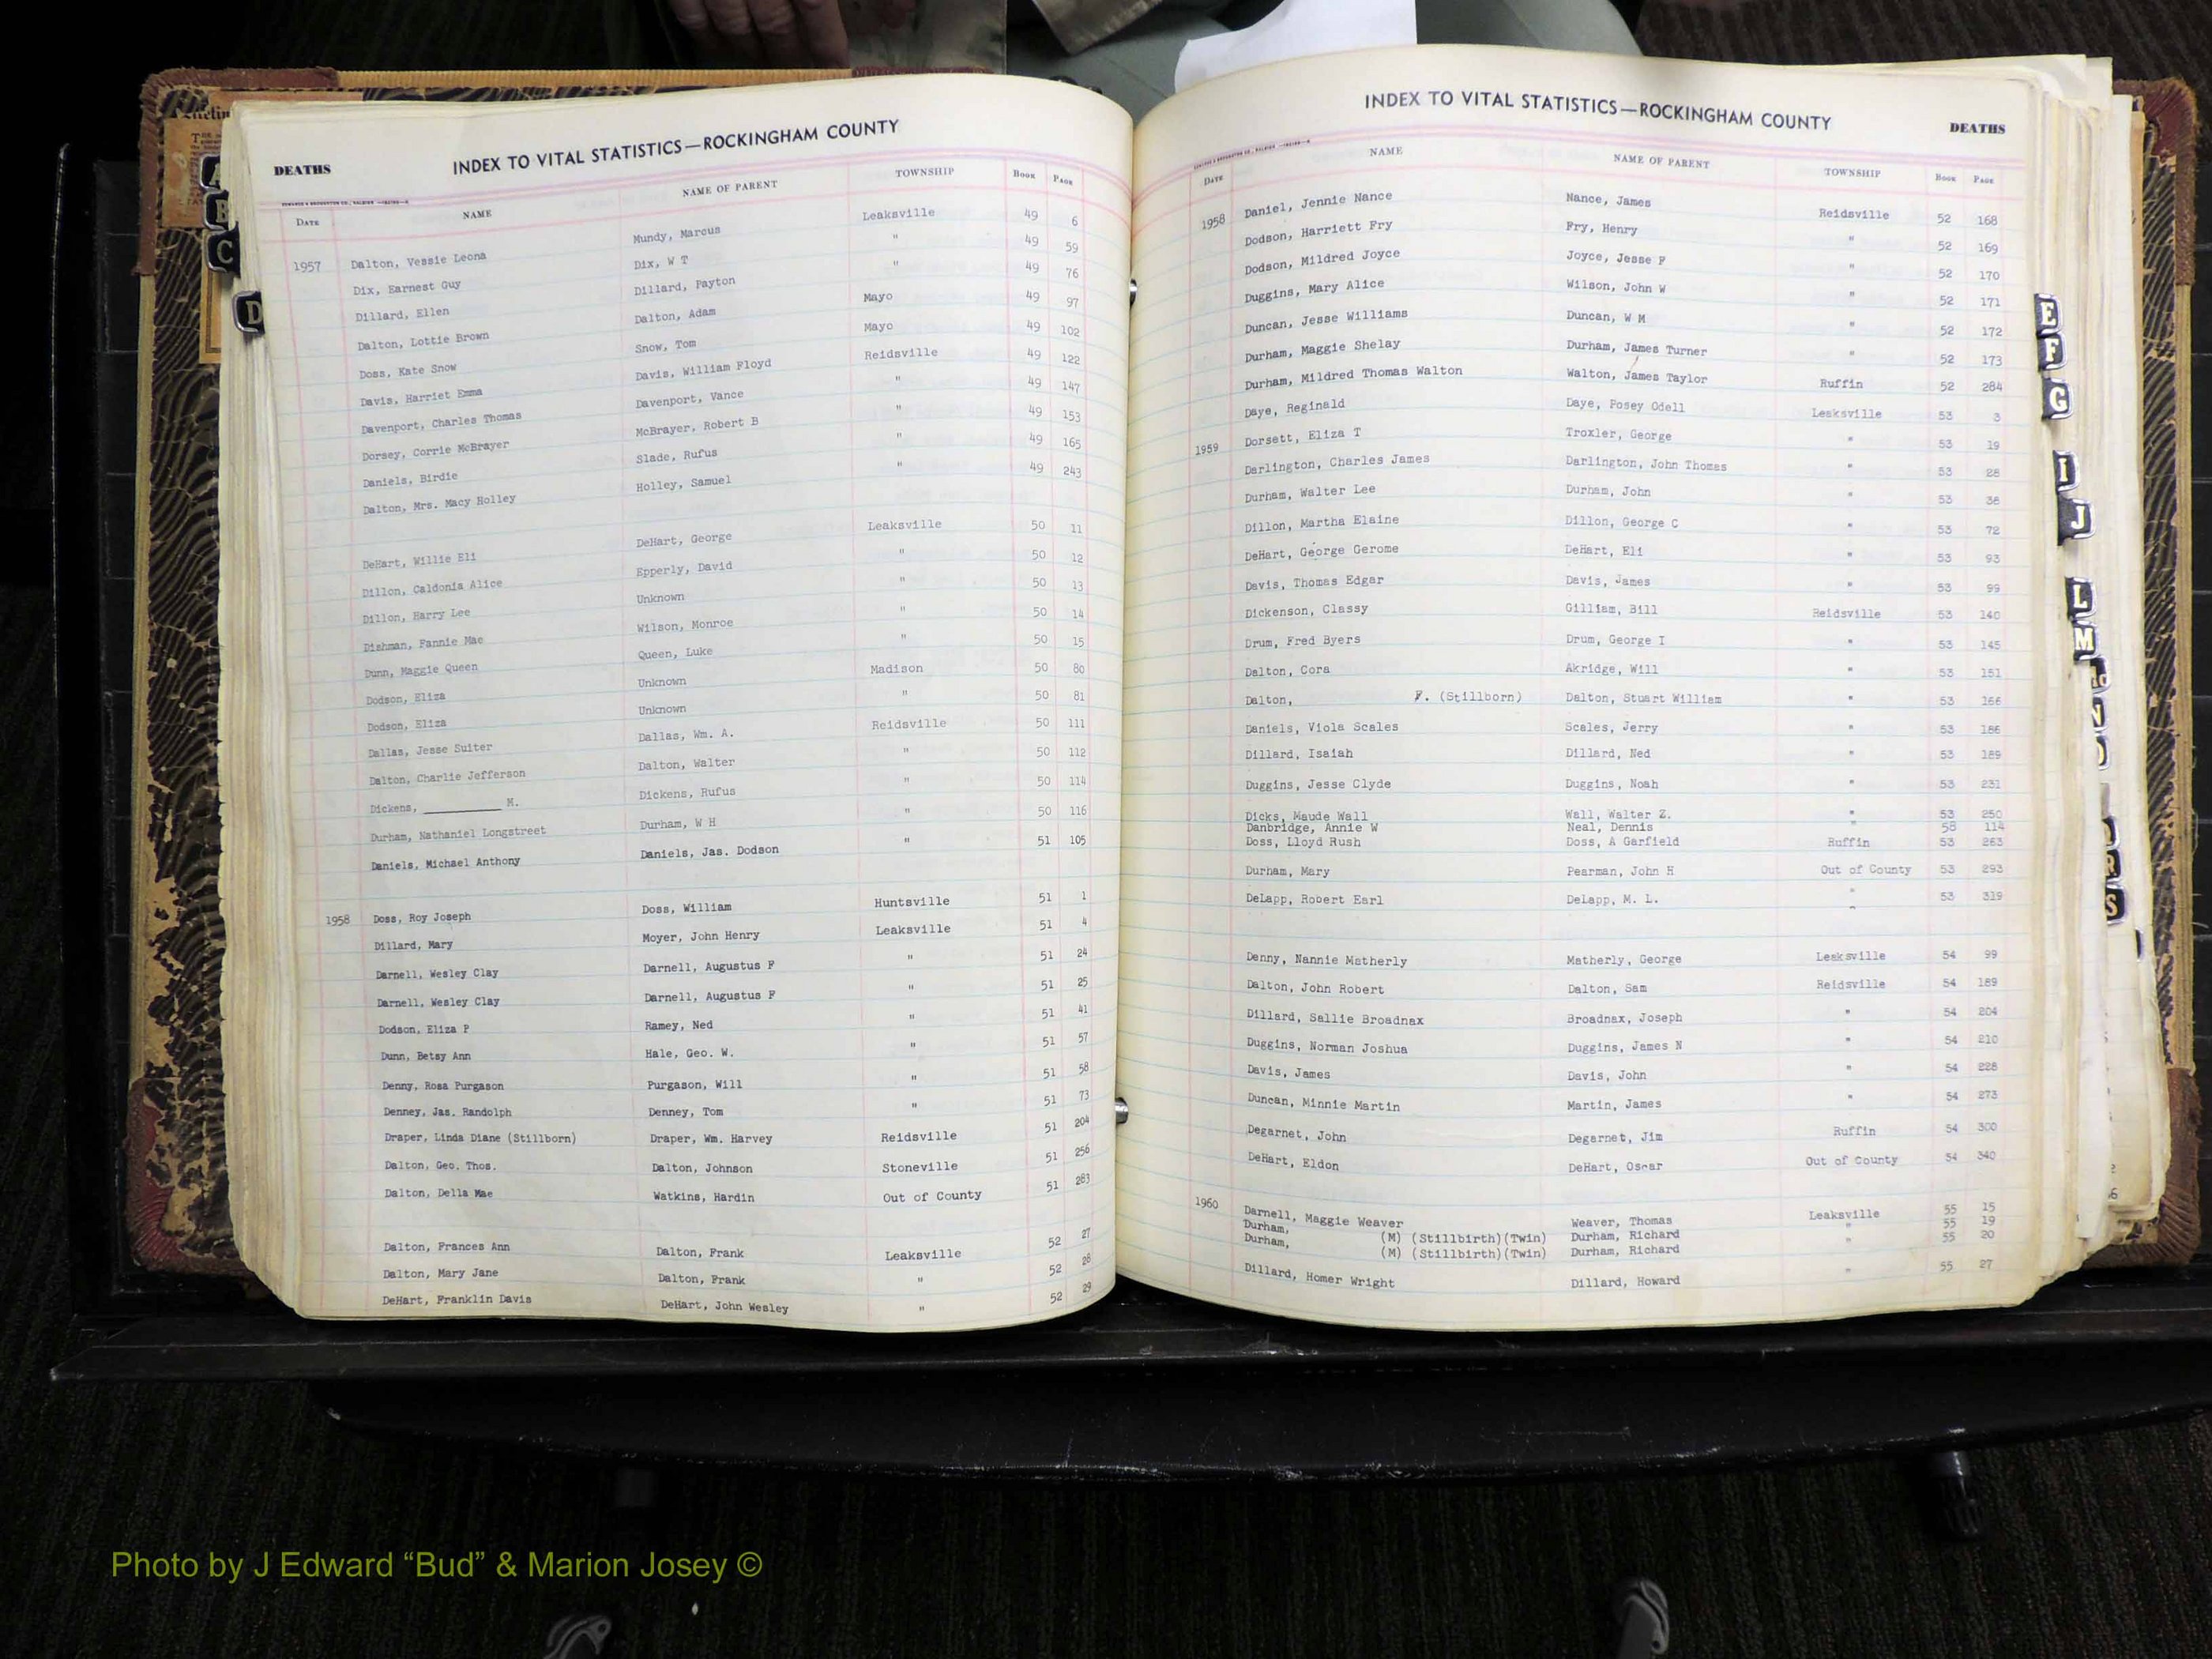 DEATHS
INDEX TO VITAL STATISTICS—ROCKINGHAM COUNTY
DATE NAME NAME OF PARENT TOWNSHIP BOOK PAGE
1957 Dalton, Vessie Leona Mundy, Marcus Leaksville 49 6
Dix, Earnest Guy Dix, W T " 49 59
Dillard, Ellen Dillard, Payton " 49 76
Dalton, Lottie Brown Dalton, Adam Mayo 49 97
Doss, Kate Snow Snow, Tom Mayo 49 102
Davis, Harriet Emma Davis, William Floyd Reidsville 49 122
Davenport, Charles Thomas Davenport, Vance " 49 147
Dorsey, Corrie McBrayer McBrayer, Robert B " 49 153
Daniels, Birdie Slade, Rufus " 49 165
Dalton, Mrs. Macy Holley Holley, Samuel " 49 243
DeHart, Willie Eli DeHart, George Leaksville 50 11
Dillon, Caldonia Alice Epperly, David " 50 12
Dillon, Harry Lee Unknown " 50 13
Dishman, Fannie Mae Wilson, Monroe " 50 14
Dunn, Maggie Queen Queen, Luke " 50 15
Dodson, Eliza Unknown Madison 50 80
Dodson, Eliza Unknown " 50 81
Dallas, Jesse Suiter Dallas, Wm. A. Reidsville 50 111
Dalton, Charlie Jefferson Dalton, Walter " 50 112
Dickens, __________ M. Dickens, Rufus " 50 114
Durham, Nathaniel Longstreet Durham, W H " 50 116
Daniels, Michael Anthony Daniels, Jas. Dodson " 51 105
1958 Doss, Roy Joseph Doss, William Huntsville 51 1
Dillard, Mary Moyer, John Henry Leaksville 51 4
Darnell, Wesley Clay Darnell, Augustus F " 51 24
Darnell, Wesley Clay Darnell, Augustus F " 51 25
Dodson, Eliza P Ramey, Ned " 51 41
Dunn, Betsy Ann Hale, Geo. W. " 51 57
Denny, Rosa Purgason Purgason, Will " 51 58
Denney, Jas. Randolph Denney, Tom " 51 73
Draper, Linda Diane (Stillborn) Draper, Wm. Harvey Reidsville 51 204
Dalton, Geo. Thos. Dalton, Johnson Stoneville 51 256
Dalton, Della Mae Watkins, Hardin Out of County 51 283
Dalton, Frances Ann Dalton, Frank Leaksville 52 27
Dalton, Mary Jane Dalton, Frank " 52 28
DeHart, Franklin Davis DeHart, John Wesley " 52 29
INDEX TO VITAL STATISTICS—ROCKINGHAM COUNTY
DEATHS
DATE NAME NAME OF PARENT TOWNSHIP BOOK PAGE
1958 Daniel, Jennie Nance Nance, James Reidsville 52 168
Dodson, Harriett Fry Fry, Henry " 52 169
Dodson, Mildred Joyce Joyce, Jesse F " 52 170
Duggins, Mary Alice Wilson, John W " 52 171
Duncan, Jesse Williams Duncan, W M " 52 172
Durham, Maggie Shelay Durham, James Turner " 52 173
Durham, Mildred Thomas Walton Walton, James Taylor Ruffin 52 284
Daye, Reginald Daye, Posey Odell Leaksville 53 3
1959 Dorsett, Eliza T Troxler, George " 53 19
Darlington, Charles James Darlington, John Thomas " 53 28
Durham, Walter Lee Durham, John " 53 38
Dillon, Martha Elaine Dillon, George C " 53 72
DeHart, George Gerome DeHart, Eli " 53 93
Davis, Thomas Edgar Davis, James " 53 99
Dickenson, Classy Gilliam, Bill Reidsville 53 140
Drum, Fred Byers Drum, George I " 53 145
Dalton, Cora Akridge, Will " 53 151
Dalton, F. (Stillborn) Dalton, Stuart William " 53 166
Daniels, Viola Scales Scales, Jerry " 53 186
Dillard, Isaiah Dillard, Ned " 53 189
Duggins, Jesse Clyde Duggins, Noah " 53 231
Dicks, Maude Wall Wall, Walter Z. " 53 250
Danbridge, Annie W Neal, Dennis " 58 114
Doss, Lloyd Rush Doss, A Garfield Ruffin 53 263
Durham, Mary Pearman, John H Out of County 53 293
DeLapp, Robert Earl DeLapp, M. L. " 53 319
Denny, Nannie Matherly Matherly, George Leaksville 54 99
Dalton, John Robert Dalton, Sam Reidsville 54 189
Dillard, Sallie Broadnax Broadnax, Joseph " 54 204
Duggins, Norman Joshua Duggins, James N " 54 210
Davis, James Davis, John " 54 228
Duncan, Minnie Martin Martin, James " 54 273
Degarnet, John Degarnet, Jim Ruffin 54 300
DeHart, Eldon DeHart, Oscar Out of County 54 340
1960 Darnell, Maggie Weaver Weaver, Thomas Leaksville 55 15
Durham, (M) (Stillbirth)(Twin) Durham, Richard " 55 19
Durham, (M) (Stillbirth)(Twin) Durham, Richard " 55 20
Dillard, Homer Wright Dillard, Howard " 55 27
B
C
D
E
F
G
I
J
L
M
S
Photo by J Edward “Bud” & Marion Josey ©